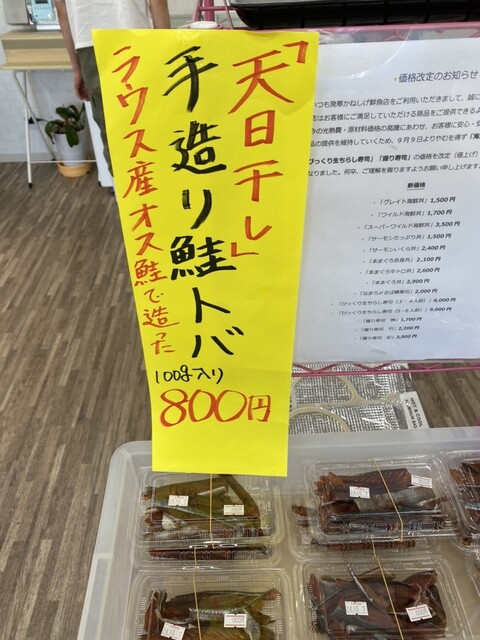 「天日干し」
手造り鮭トバ
ラウス産オス鮭で造った
100g入り
800円
価格改定のお知らせ
いつも発寒かねしげ鮮魚店をご利用いただきまして、誠に
はお客様にご満足していただける商品をご提供できるよう
の光熱費・原材料価格の高騰にあわせ、お客様に安心・安
品の提供を維持していくため、9月9日よりやむを得ず「海
びっくり生ちらし寿司」「握り寿司」の価格を改定（値上げ）
なりました。何卒、ご理解を賜りますようお願い申し上げます。
新価格
・「グレイト海鮮丼」1,500円
・「ワイルド海鮮丼」1,700円
・「スーパーワイルド海鮮丼」3,500円
・「サーモンたっぷり丼」1,500円
・「サーモンいくら丼」2,400円
・「本まぐろ赤身丼」2,100円
・「本まぐろ中トロ丼」2,600円
・「本まぐろ丼」2,900円
2,000円
・「びっくり生ちらし寿司（3・4人前）」6,000円
・「びっくり生ちらし寿司（5・6人前）」9,000円
・「握り寿司 1,700円
・「握り寿司 竹」2,200円
・「握り寿司 3,000円
HOT & COOL